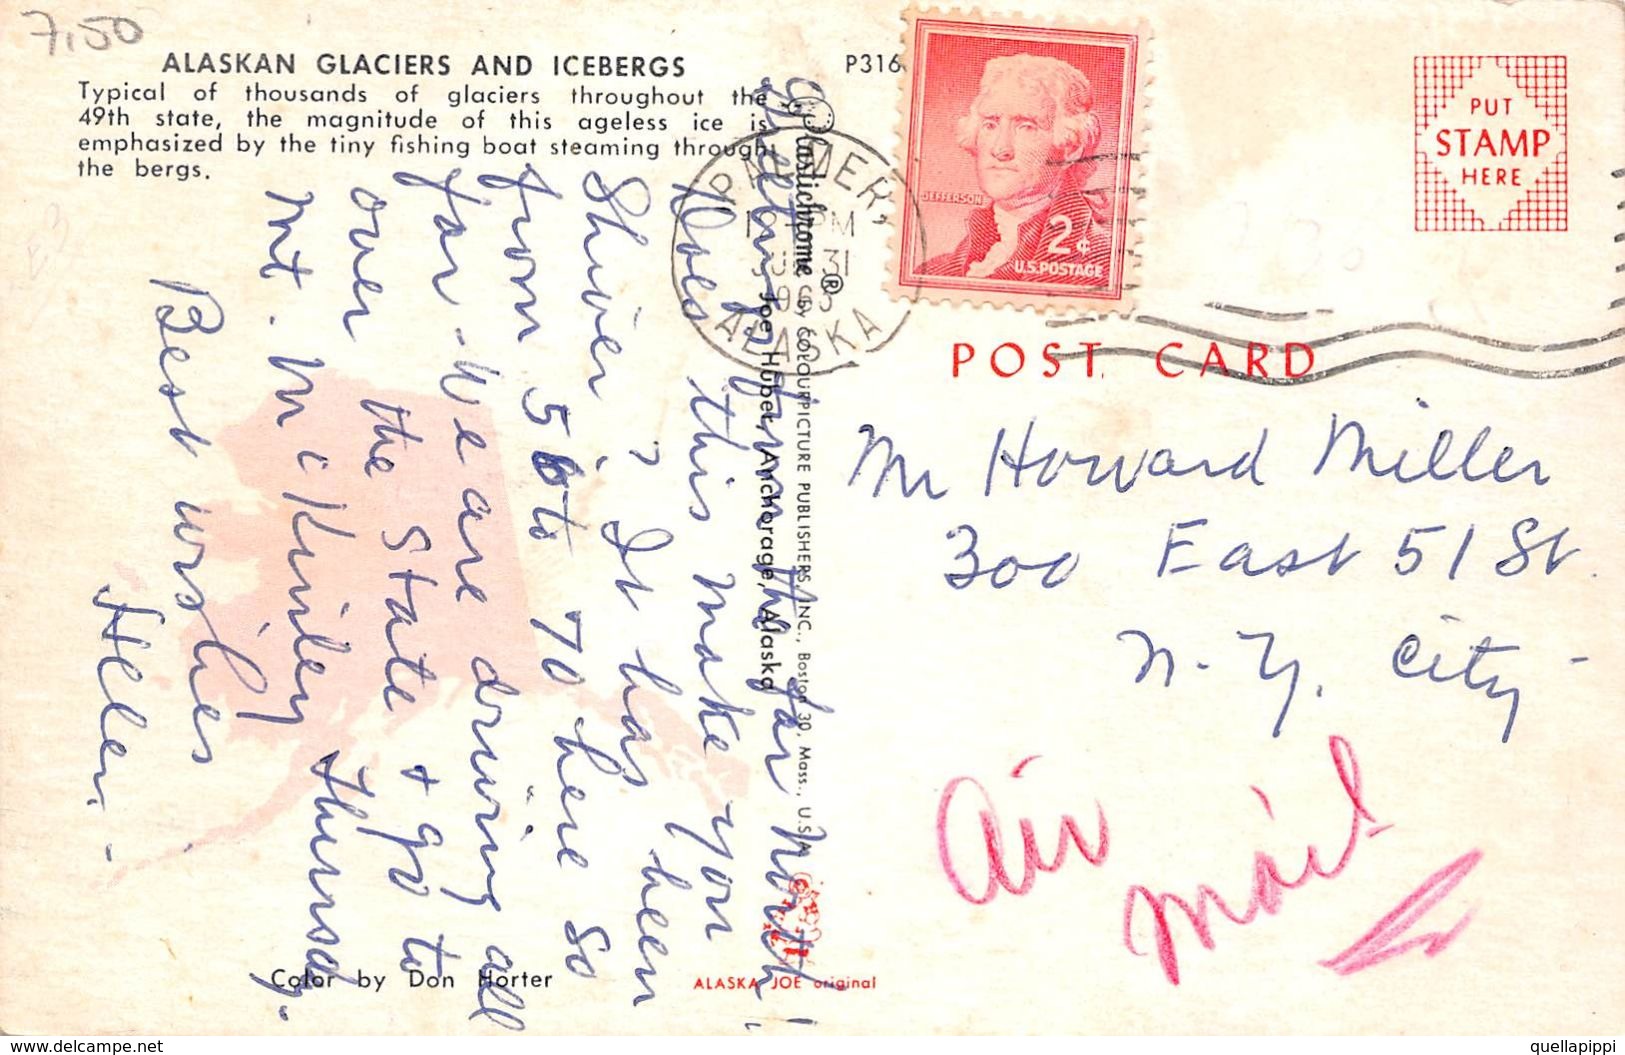 7.50
ALASKAN GLACIERS AND ICEBERGS
Typical of thousands of glaciers throughout the
49th state, the magnitude of this ageless ice is
emphasized by the tiny fishing boat steaming through
the bergs.
P316
PALMER,
PM
31
ALASKA
JEFFERSON
2¢
U.S. POSTAGE
PUT
STAMP
HERE
POST CARD
Plastichrome ® by COLOURPICTURE PUBLISHERS, INC., Boston 30, Mass., U.S.A.
Joe Huber, Anchorage, Alaska
Greetings from the far North!
Does this make you
Shiver? It has been
from 56 to 70 here so
far - We are driving all
over the State & go to
Mt. McKinley Thursday.
Best wishes
Helen -
Mr Howard Miller
300 East 51 St.
N.Y. City -
Air
Mail
Color by Don Horter
ALASKA JOE original
delcampe.net
quellapippi